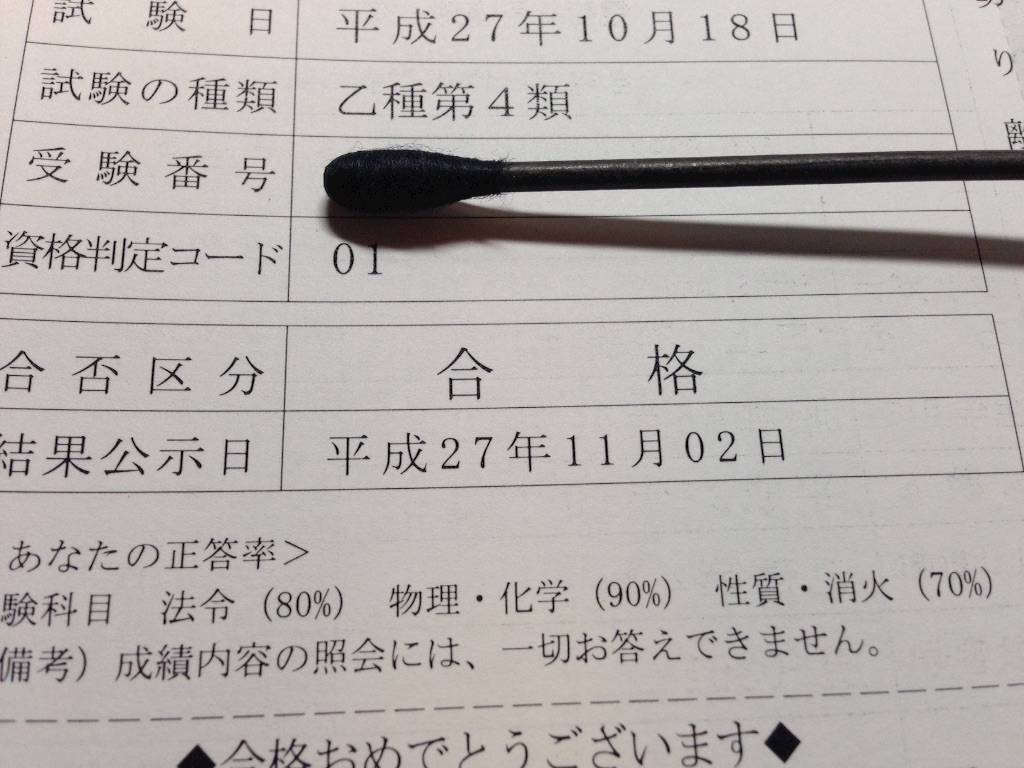 試験日 平成27年10月18日
試験の種類 乙種第4類
受験番号
資格判定コード 01
合否区分 合格
結果公示日 平成27年11月02日
あなたの正答率>
験科目 法令（80%） 物理・化学（90%） 性質・消火（70%）
備考）成績内容の照会には、一切お答えできません。
◆合格おめでとうございます◆
り